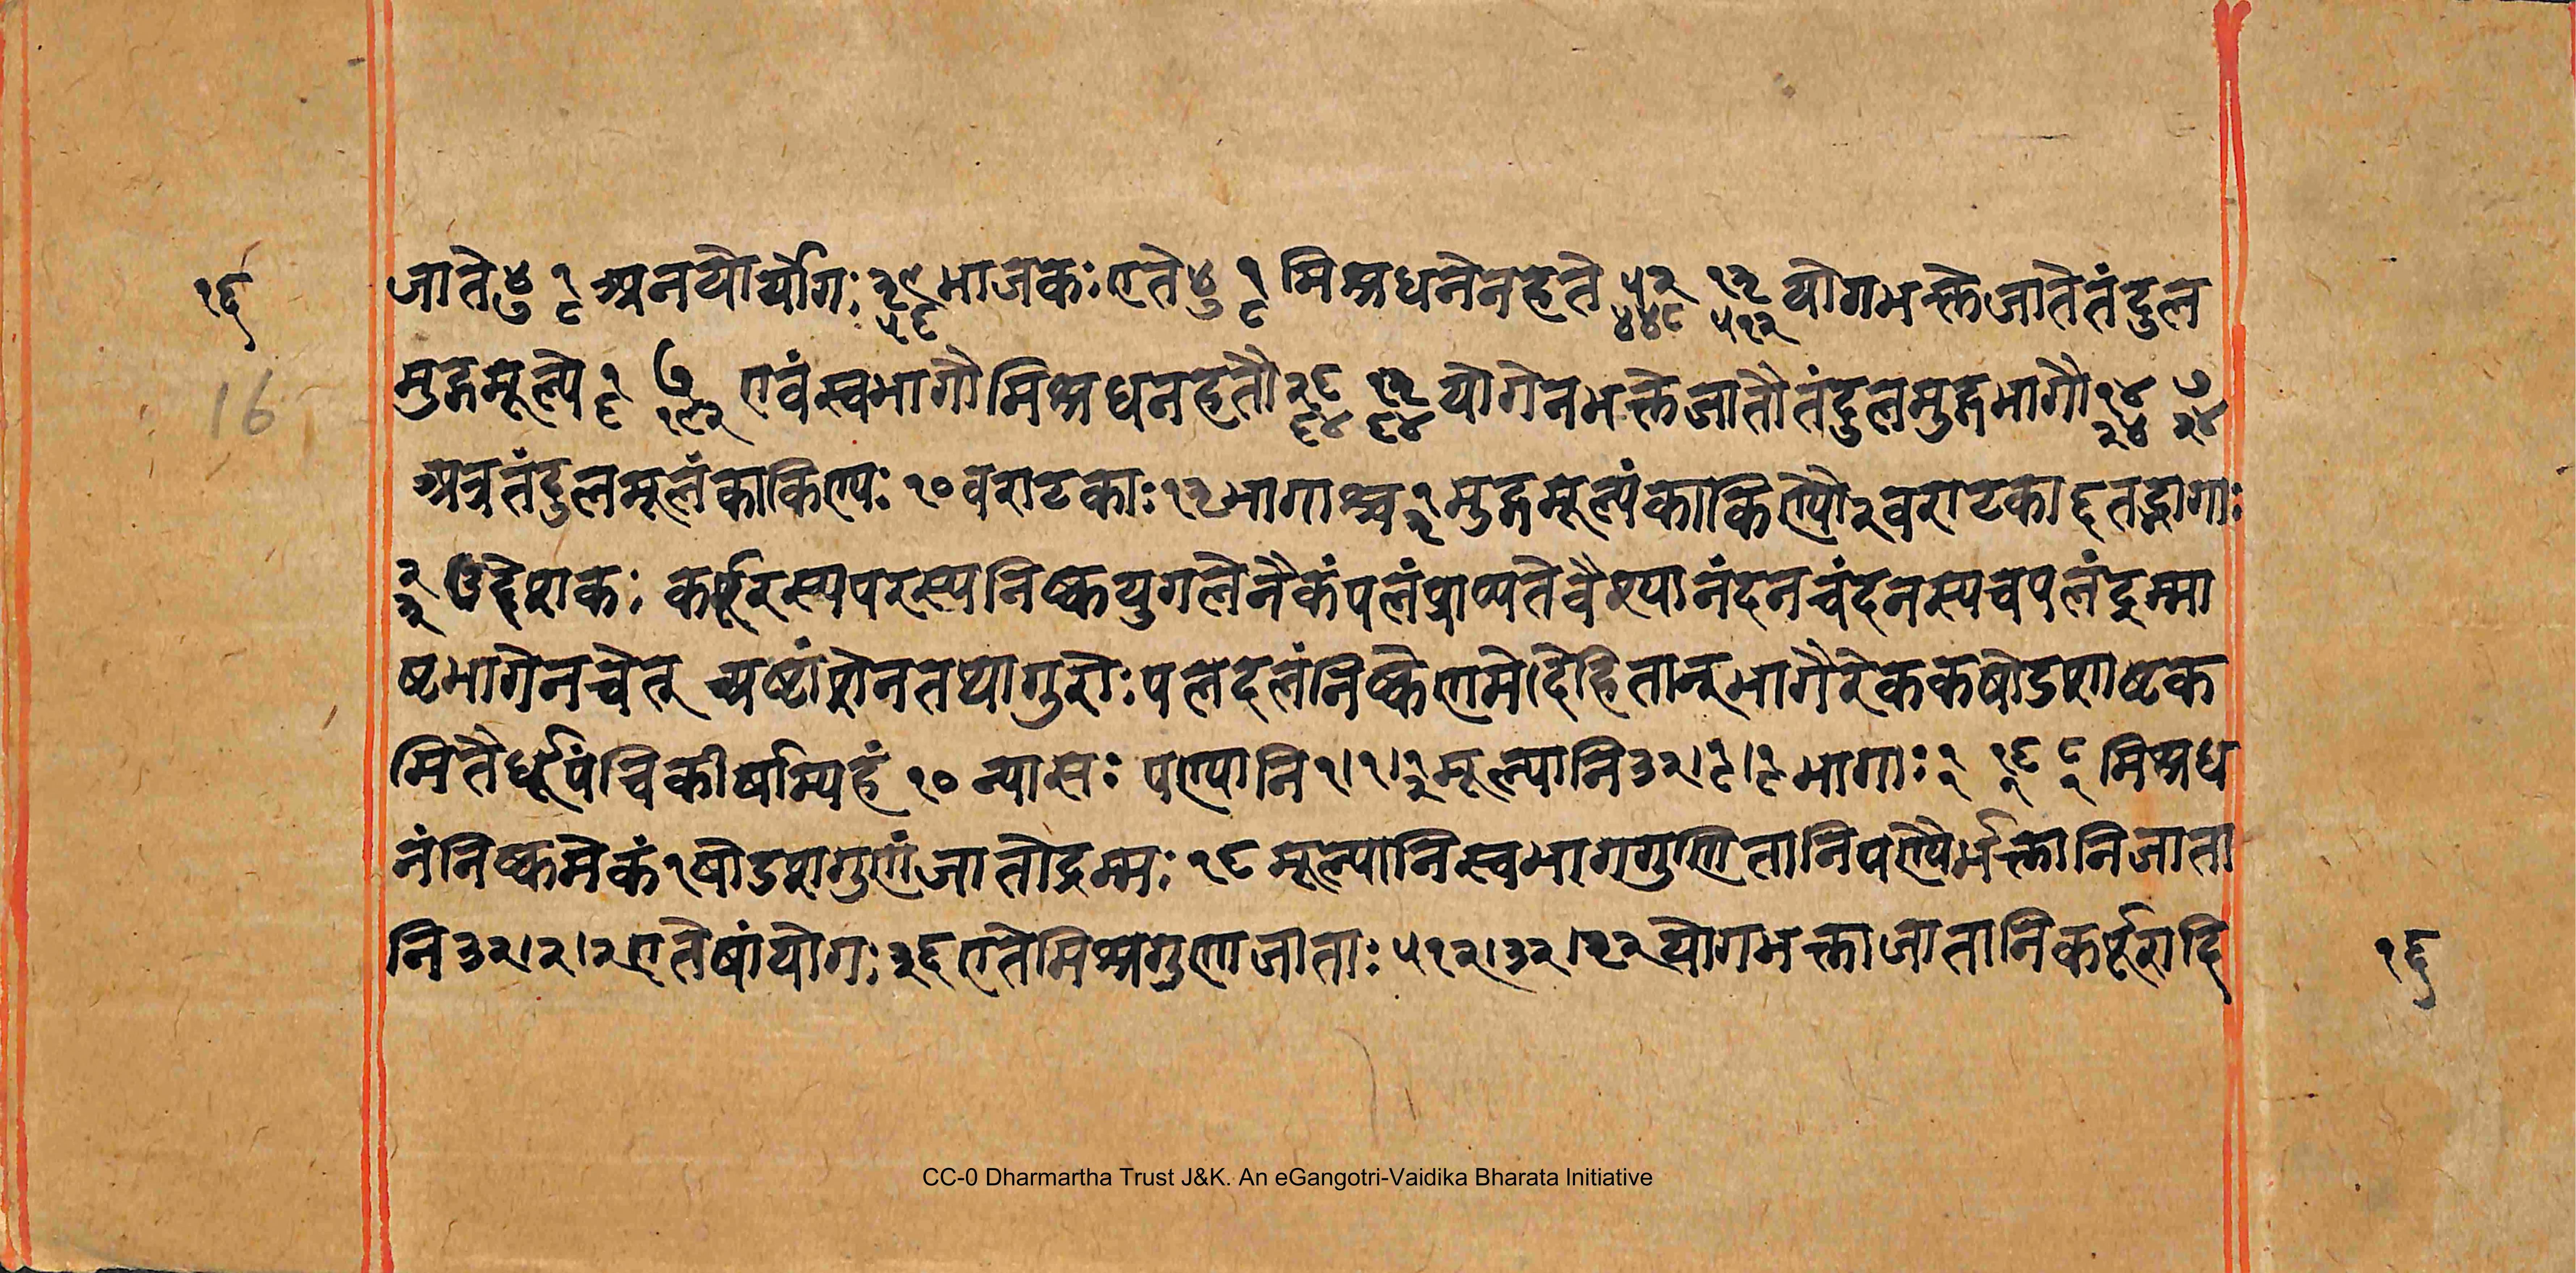 १६
16
जाते ४/७ १/८ अनयोर्योगः ३९/५६ भाजकः एते ४/७ १/८ मिश्रधनेनहते ५२/४४८ १३/५१२ योगभक्तेजातेतंदुल
मुद्गमूल्ये १/६ ७/१९२ एवंस्वभागौमिश्रधनहतौ २६/६४ १३/६४ योगेनभक्तेजातौतंदुलमुद्गभागौ १४/२४ ७/२४
अत्रतंदुलमूलंकाकिण्यः १० वराटकाः १३ भागाश्च १/३ मुद्गमूल्यंकाकिण्यौ २ वराटका ६ तद्भागाः
२/३ उद्देशकः कर्पूरस्यपरस्यनिष्कयुगलेनैकंपलंप्राप्यतेवैश्यानंदनचंदनस्यचपलंद्रम्मा
ष्टभागेनचेत् अष्टांशेनतथागुरोःपलदलंनिष्केणमेदेहितान्भागैरेककषोडशाष्टक
मितैर्धूपंचिकीर्षाम्यहं १० न्यासः पण्यानि १।१।१/२ मूल्यानि ३२।१/८।१/८ भागाः १ १६ ८ मिश्रध
नंनिष्कमेकं १ षोडशगुणंजातोद्रम्मः १६ मूल्यानिस्वभागगुणितानिपण्यैर्भक्तानिजाता
नि ३२।२।२ एतेषांयोगः ३६ एतेमिश्रगुणाजाताः ५१२।३२।३२ योगभक्ताजातानिकर्पूरादि
१६
CC-0 Dharmartha Trust J&K. An eGangotri-Vaidika Bharata Initiative